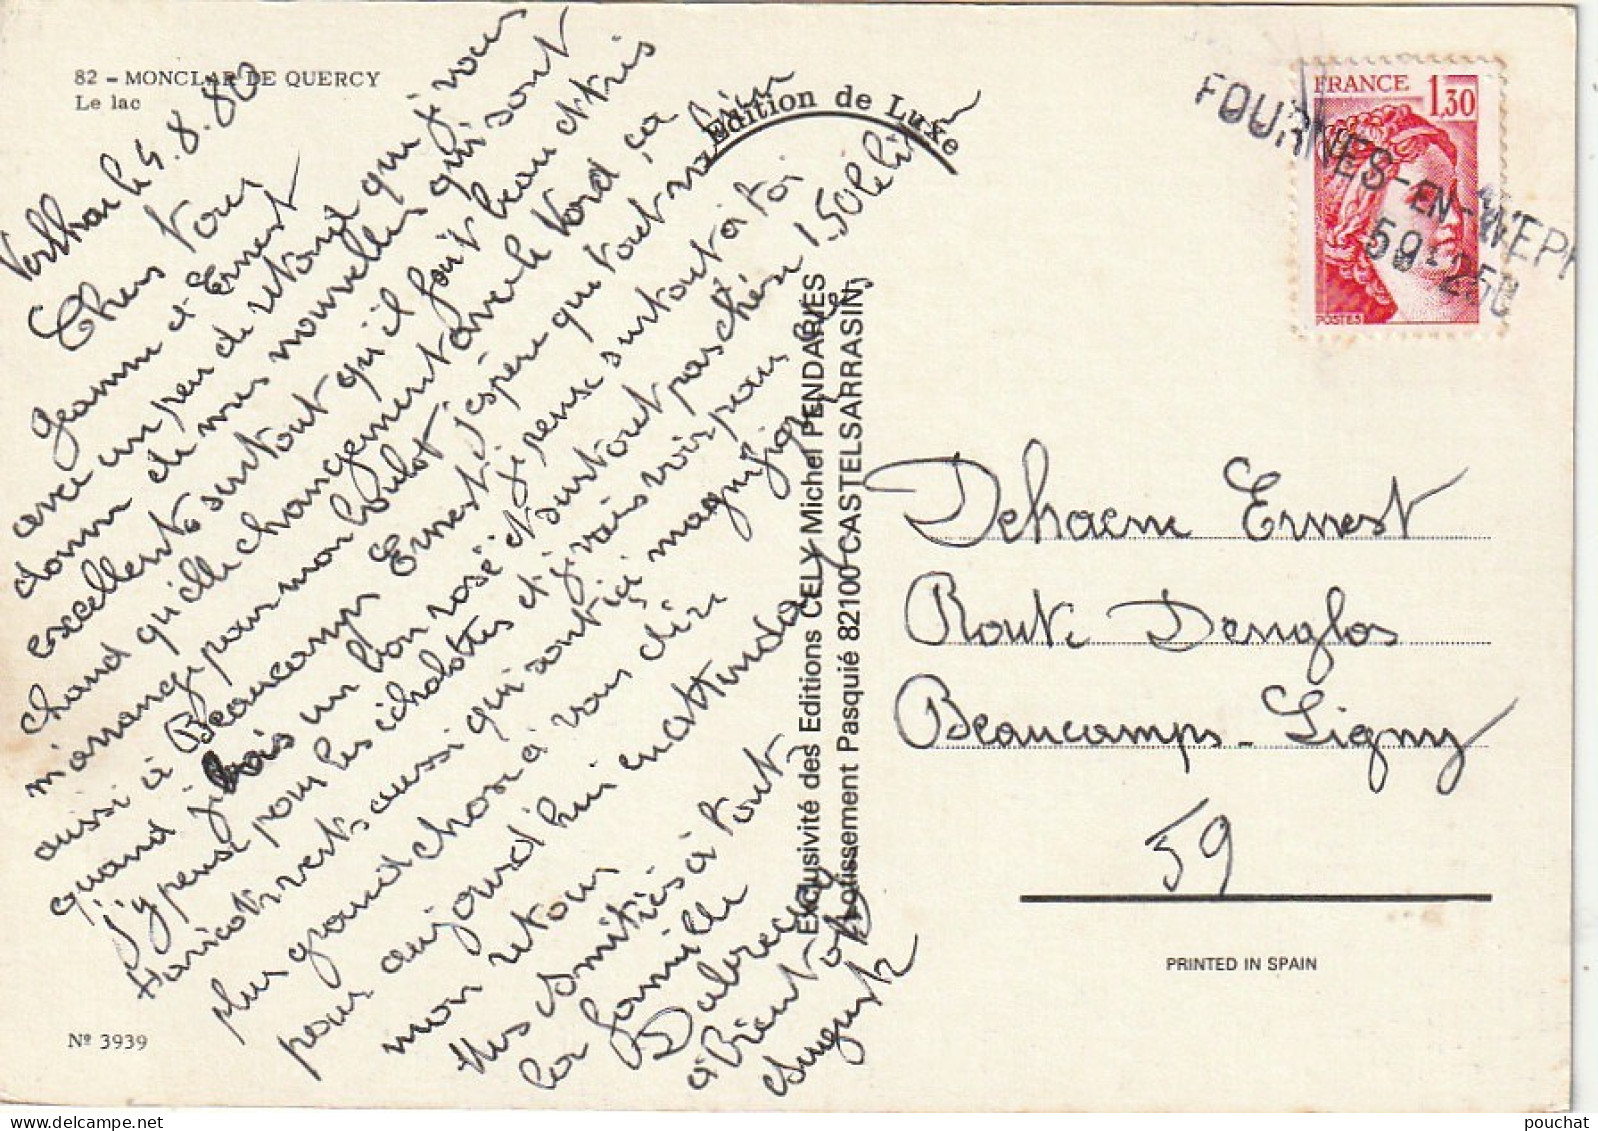 82 - MONCLAR DE QUERCY
Le lac
Edition de Luxe
FRANCE 1,30
POSTES
FOURNES-EN-WEPP
59-250
le 4.8.80
Chers Tous
Jeanne et Ernest
avec un peu de retard que je vous
donne de mes nouvelles qui sont
excellents surtout qu'il fait beau et très
chaud qu'elle changement avec le Nord, ça
m'arrange pour mon boulot j'espère que tout va bien
aussi à Beaucamps Ernest je pense surtout à toi
quand je bois un bon rosé et surtout pas chère 1.50 le litre
j'y pense pour les échalottes et je vais voir pour les
Haricots verts aussi qui sont ici magnifiques
plus grand chose à vous dire
pour aujourd'hui en attendant
mon retour
Mes Amitiés à tout
la famille
à Bientôt
Auguste
Exclusivité des Editions CELY Michel PENDARIES
Lotissement Pasquié 82100 CASTELSARRASIN
Dehaene Ernest
Route Denglos
Beaucamps-Ligny
59
PRINTED IN SPAIN
Nº 3939
pouchat